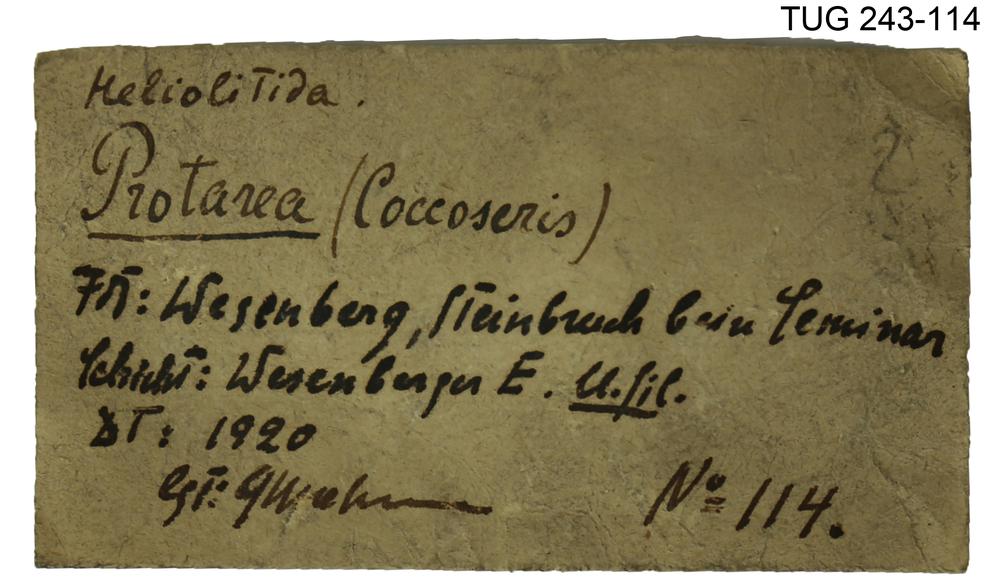 TUG 243-114
Heliolitida.
Protarea (Coccoseris)
FO: Wesenberg, Steinbruch beim Seminar
Schicht: Wesenberger E. U. Sil.
DT: 1920
No 114.